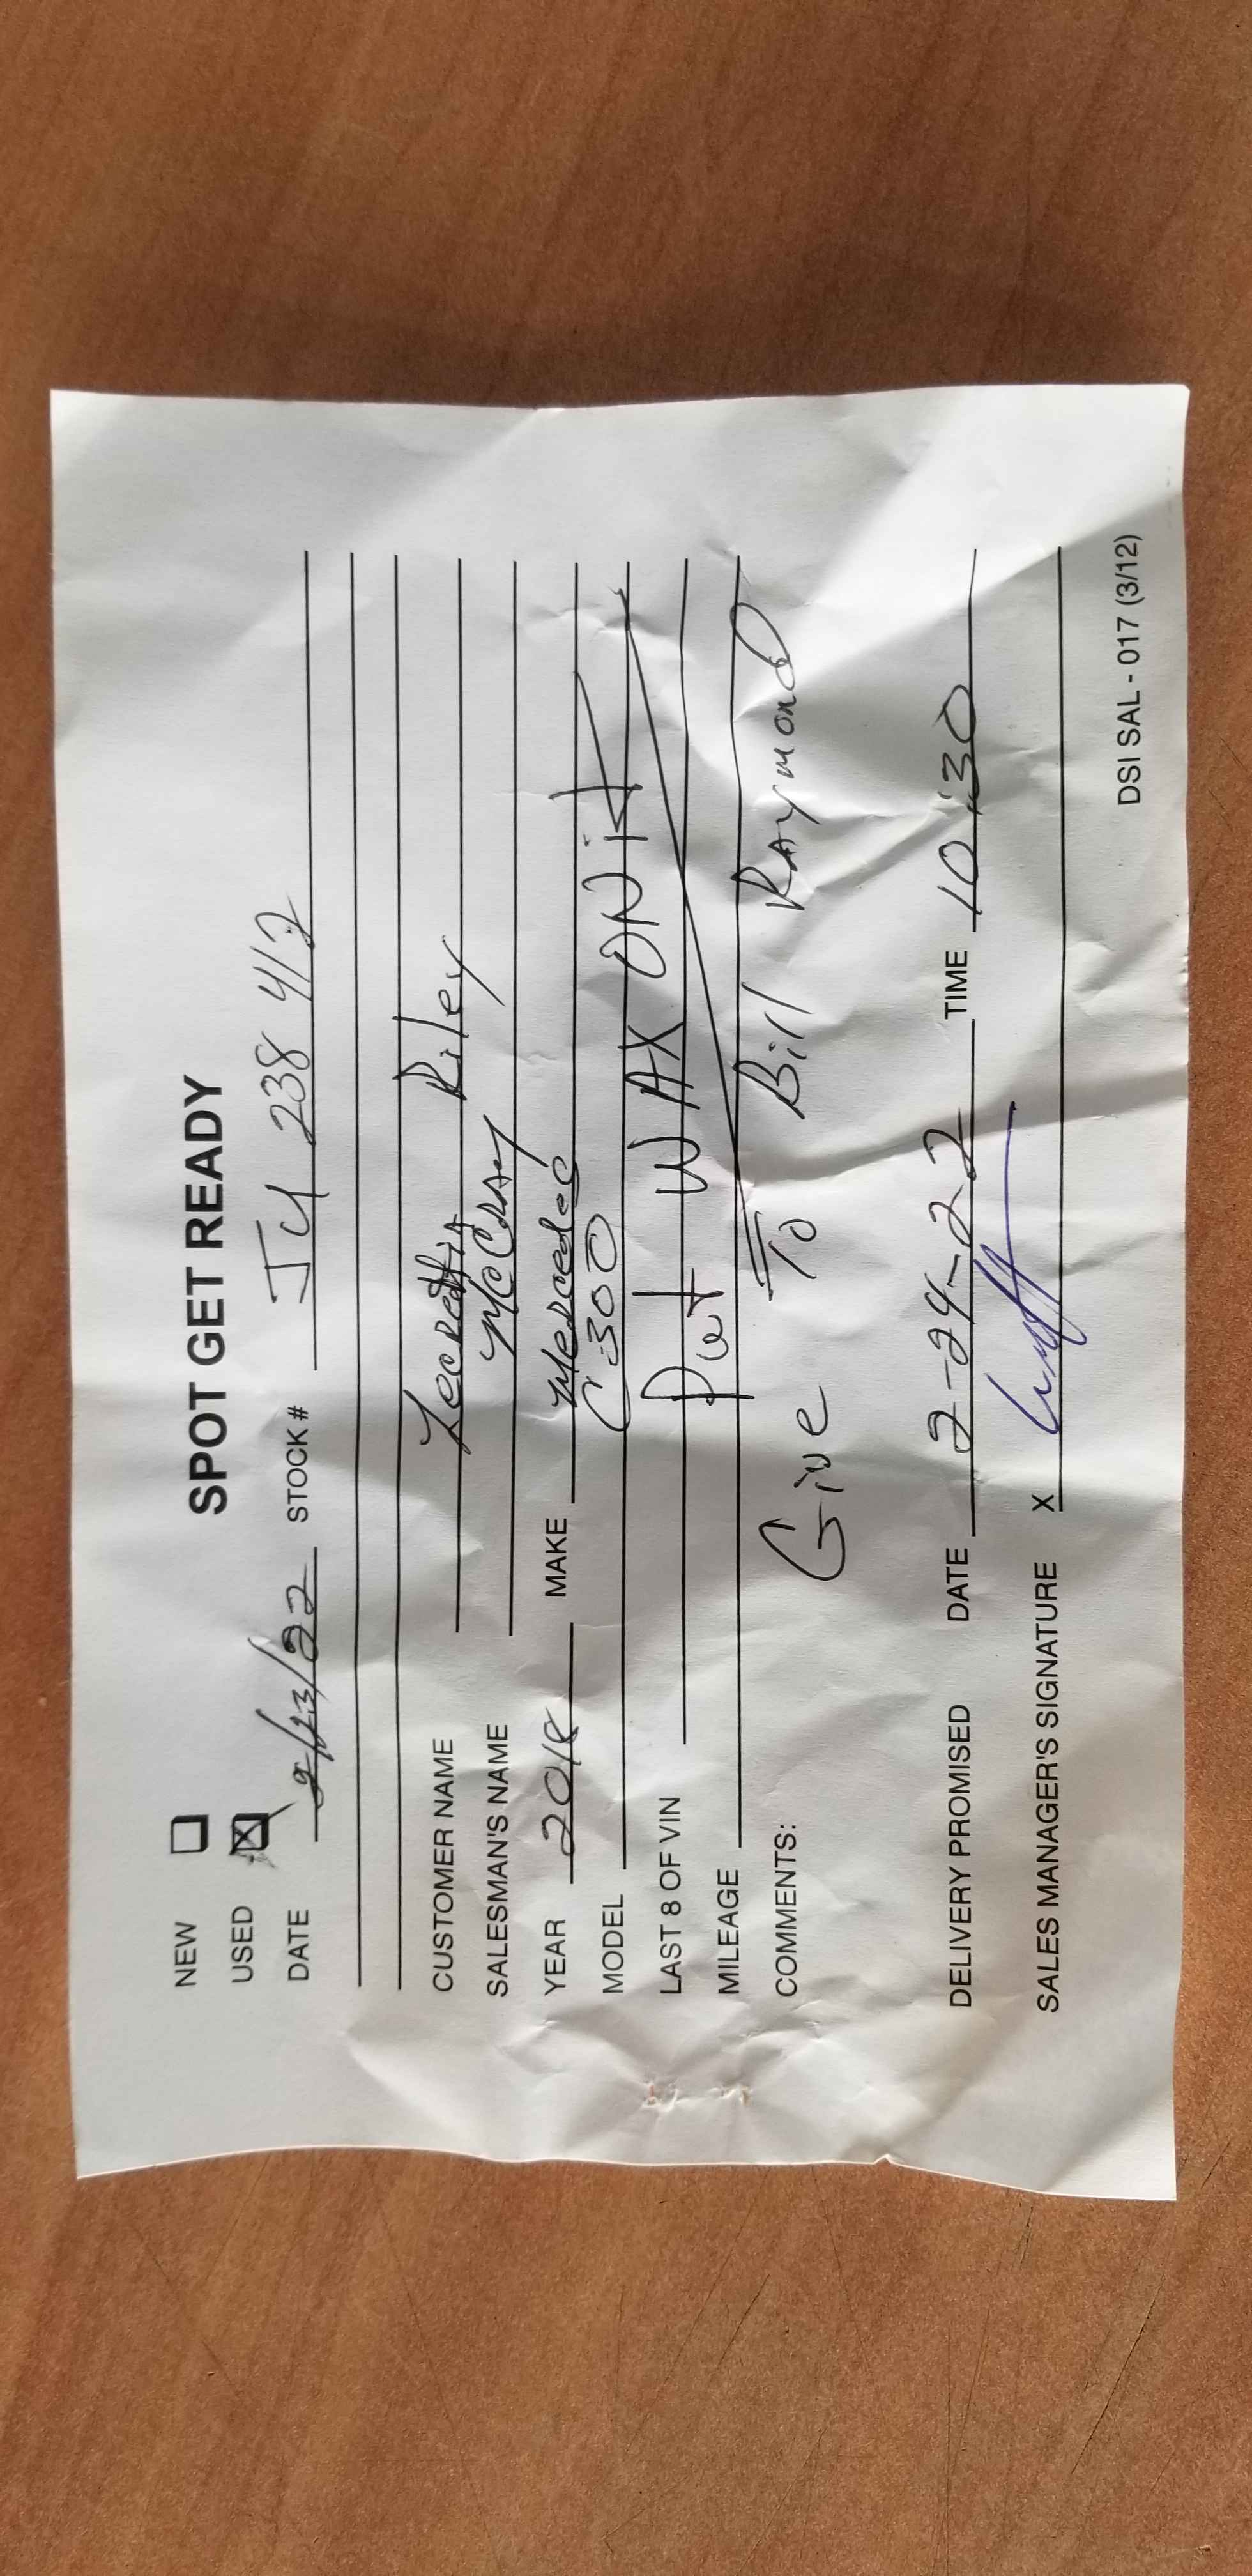 SPOT GET READY
NEW
USED
DATE 2/23/22 STOCK # JU 238 412
CUSTOMER NAME Riley
SALESMAN'S NAME McCray
YEAR 2018 MAKE Mercedes
MODEL C300
LAST 8 OF VIN Put WAX ON it
MILEAGE
COMMENTS: Give To Bill Raymond
DELIVERY PROMISED DATE 2-24-22 TIME 10:30
SALES MANAGER'S SIGNATURE X
DSI SAL - 017 (3/12)